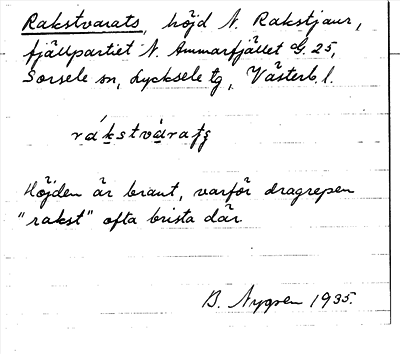 Rakstvarats, höjd N. Rakstjaur,
fjällpartiet N. Ammarfjället G. 25,
Sorsele sn, Lycksele tg, Västerb. l.
Höjden är brant, varför dragrepen
"rakst" ofta brista där.
B. Nygren 1935.